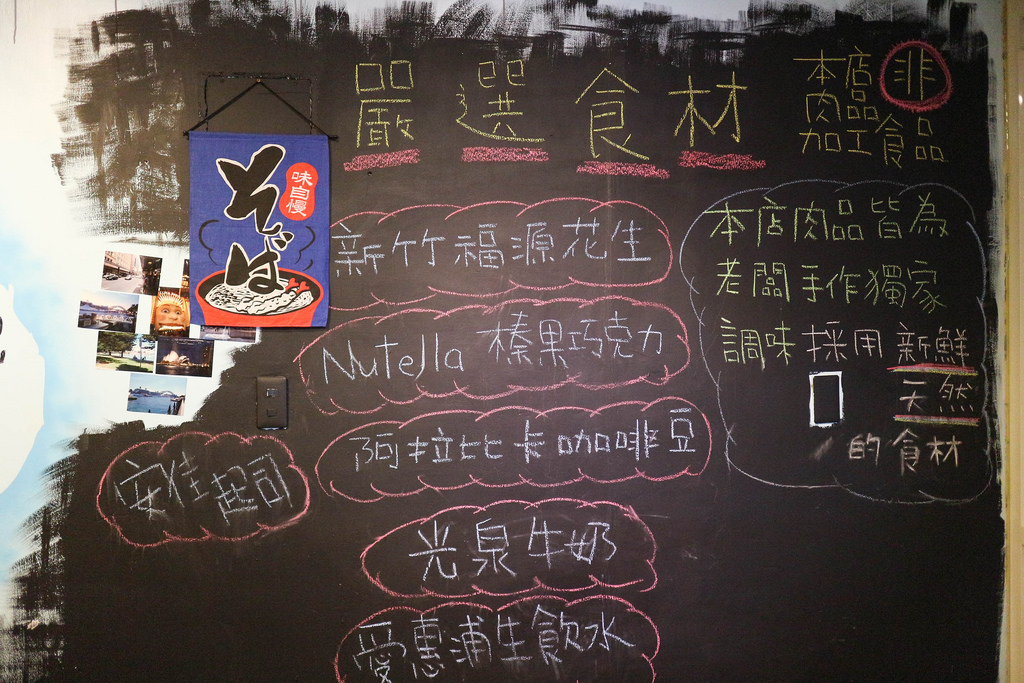 嚴選食材
本店非
肉品
加工食品
そば
味自慢
新竹福源花生
Nutella 榛果巧克力
阿拉比卡咖啡豆
安佳起司
光泉牛奶
愛惠浦生飲水
本店肉品皆為
老闆手作獨家
調味採用新鮮
天然
的食材